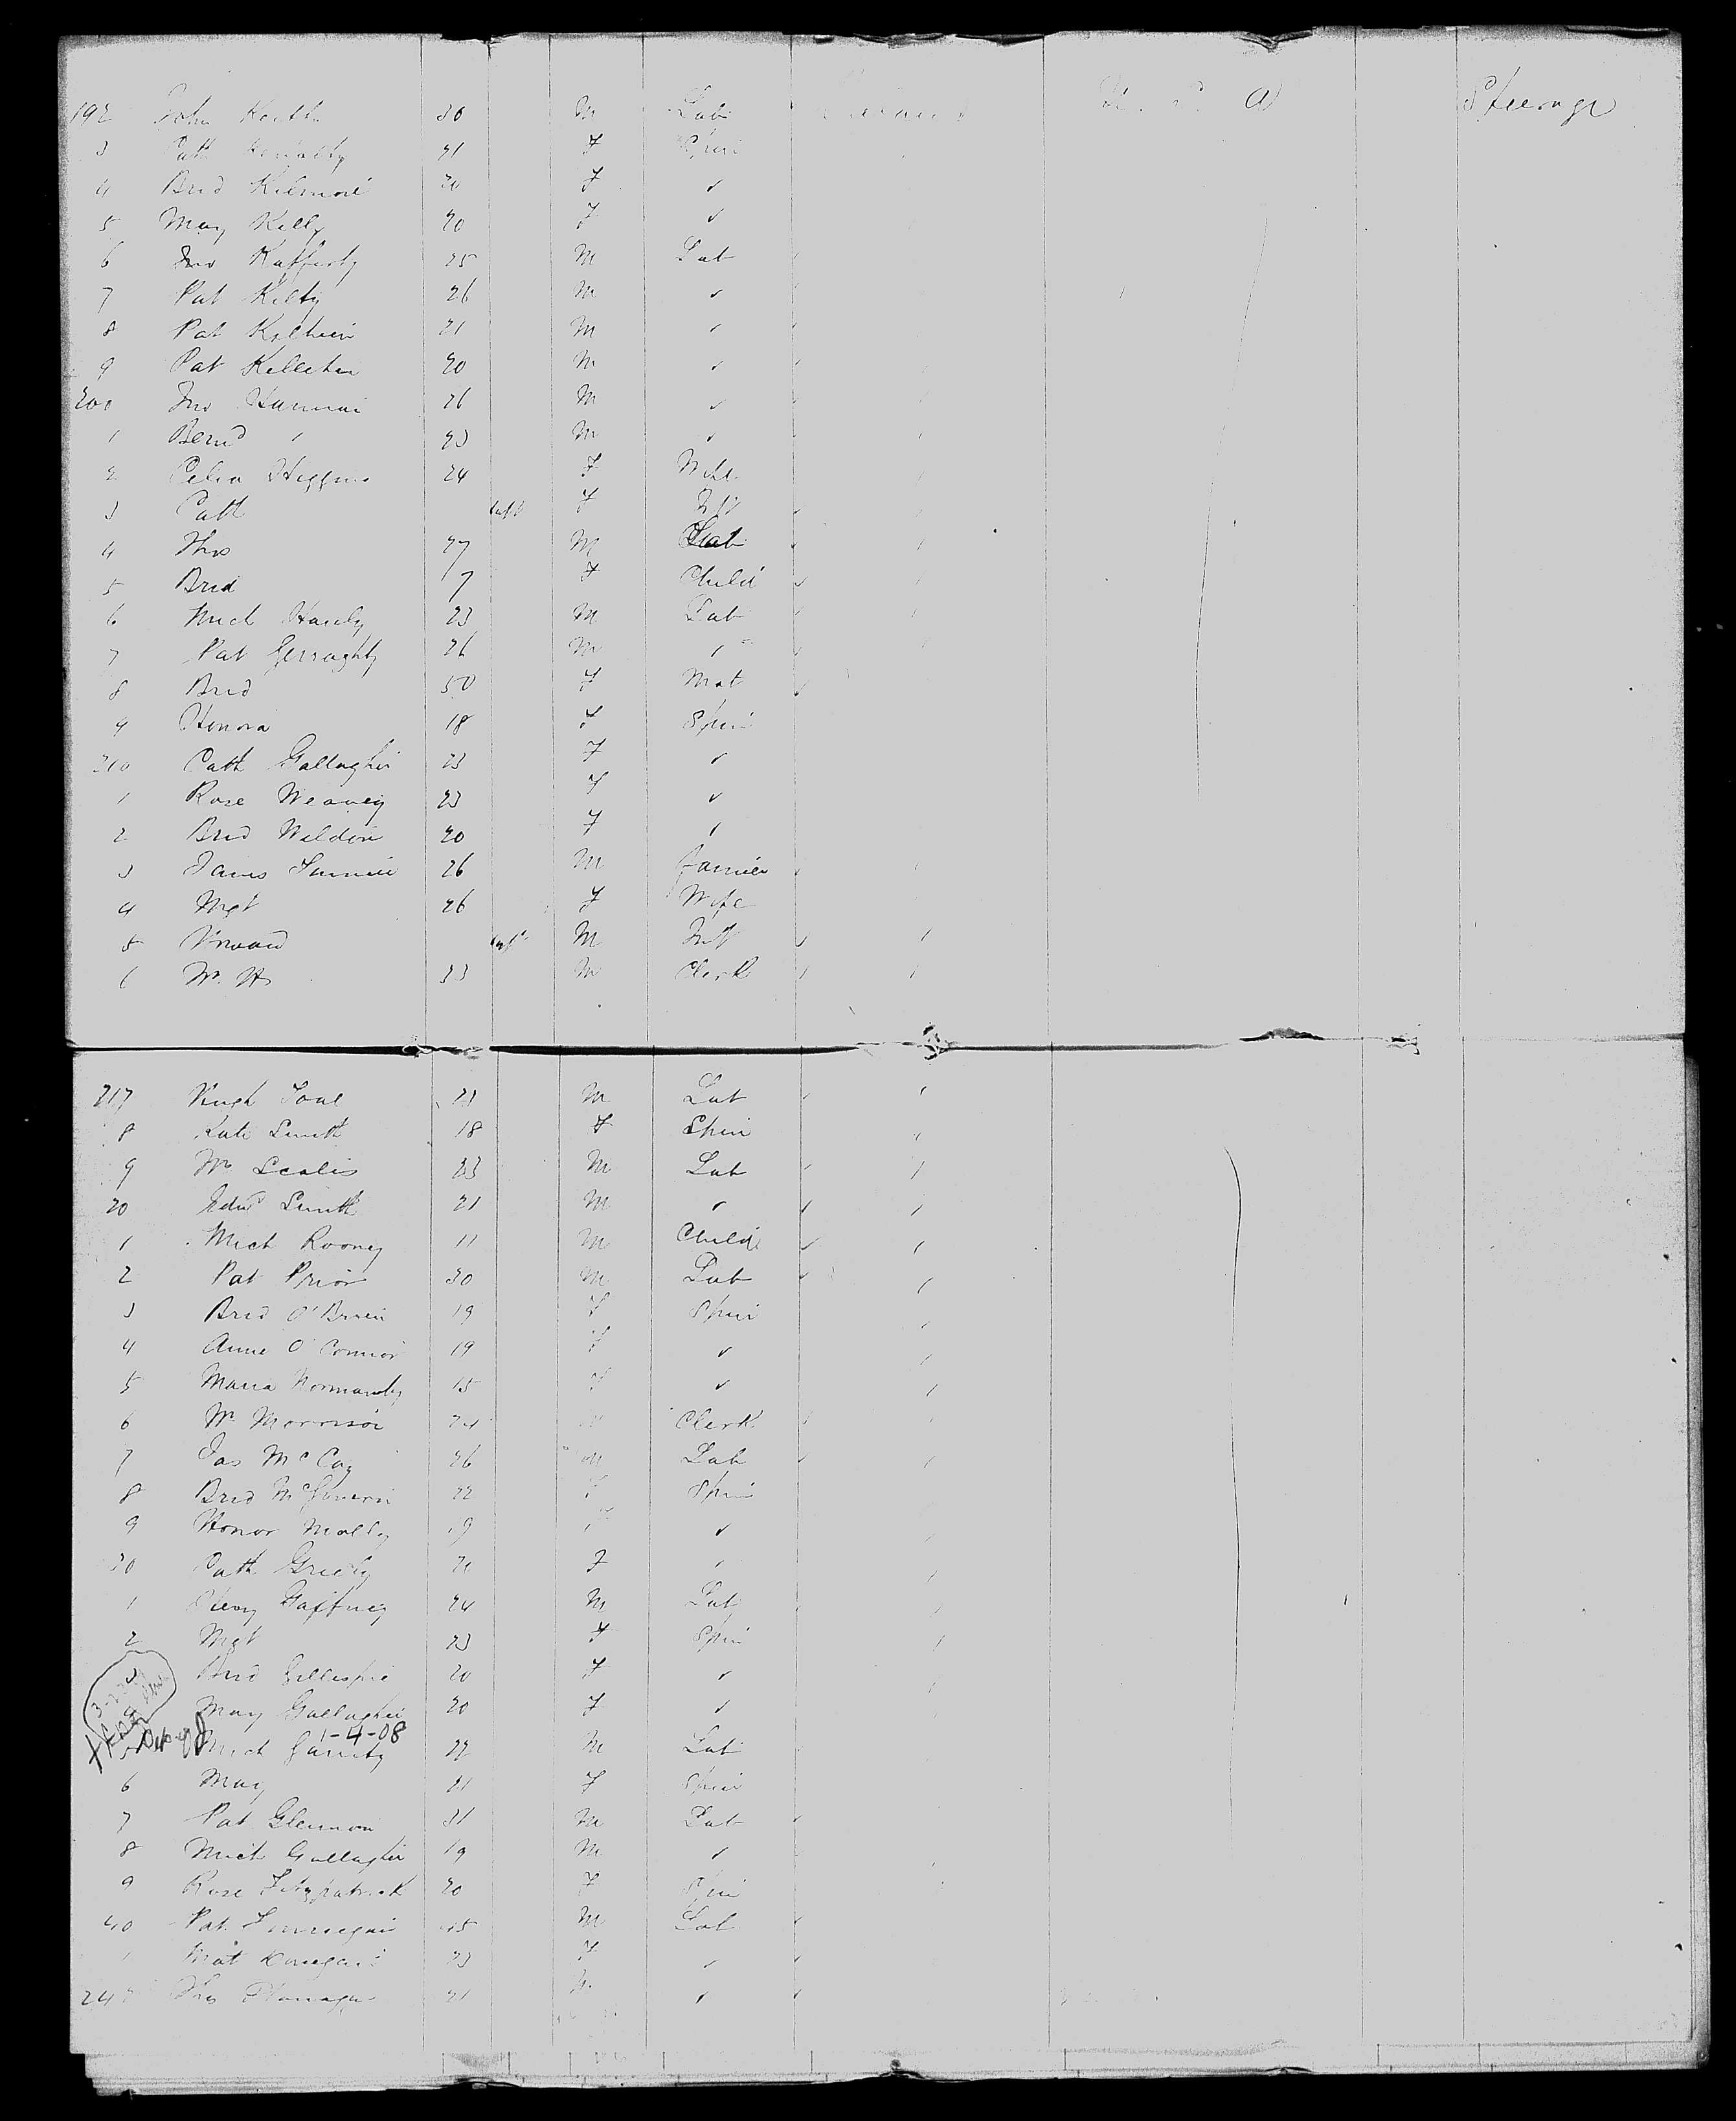 192 John Keith 30 M Lab Ireland U. S. A Steerage
3 Cath 21 F Spin
4 Brid Kilmore 20 F "
5 May Kelly 20 F "
6 Jno Rafferty 25 M Lab
7 Pat Kelty 26 M "
8 Pat 21 M "
9 Pat Kelleher 20 M "
200 Jno Hannan 26 M "
1 Bernd " 23 M "
2 Celia Higgins 24 F Wife
3 Cath Inft F Inft
4 Thos 27 M Lab
5 Brid 7 F Child
6 Mich Hardy 23 M Lab
7 Pat Gerraghty 26 M "
8 Brid 50 F Mat
9 Honora 18 F Spin
210 Cath Gallagher 23 F "
1 Rose Weaney 23 F "
2 Brid Weldon 20 F "
3 James 26 M Farmer
4 Mgt 26 F Wife
5 Inft M Inft
6 Wm H 33 M Clerk
217 Hugh Toal 21 M Lab
8 Kate Smith 18 F Spin
9 Wm Scales 23 M Lab
20 Edwd Smith 21 M "
1 Mich Rooney 11 M Child
2 Pat Prior 30 M Lab
3 Brid O'Brien 19 F Spin
4 Anne O'Connor 19 F "
5 Maria Normandy 15 F "
6 Wm Morrison 24 M Clerk
7 Jas McCoy 26 M Lab
8 Brid McGovern 22 F Spin
9 Honor Mally 19 F "
30 Cath Greely 20 F "
1 Gaffney 24 M Lab
2 Mgt 23 F Spin
3 Brid Gillespie 20 F "
4 May Gallagher 20 F "
1-4-08
5 Mich Garrity 22 M Lab
6 May 21 F Spin
7 Pat Glennon 31 M Lab
8 Mich Gallagher 19 M "
9 Rose Fitzpatrick 20 F Spin
40 Pat Finnegan 45 M Lab
1 Mat 23 F "
242 Thos Flanagan 21 M "